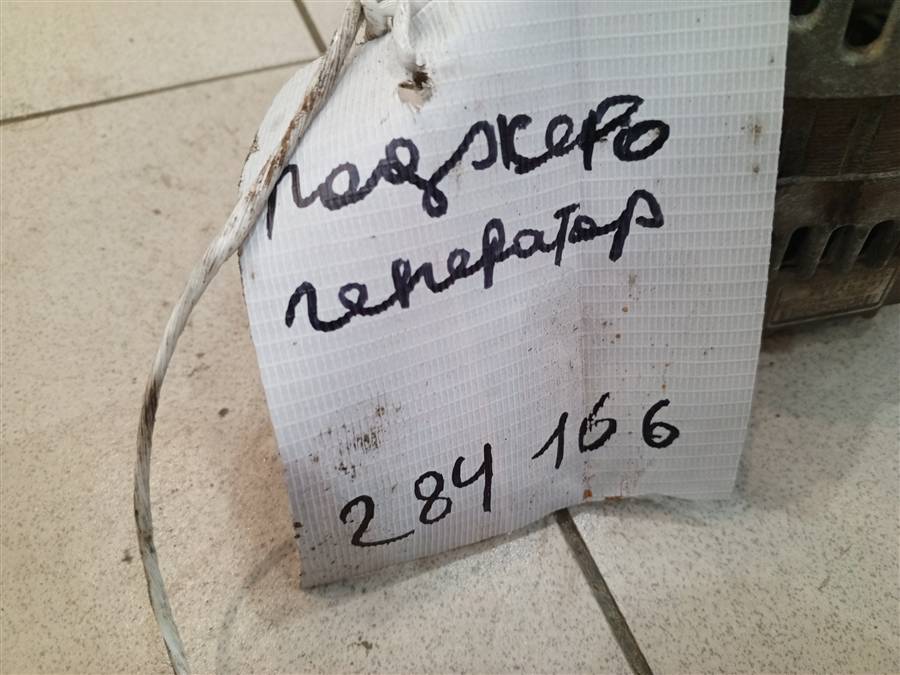 паджеро
генератор
284 166